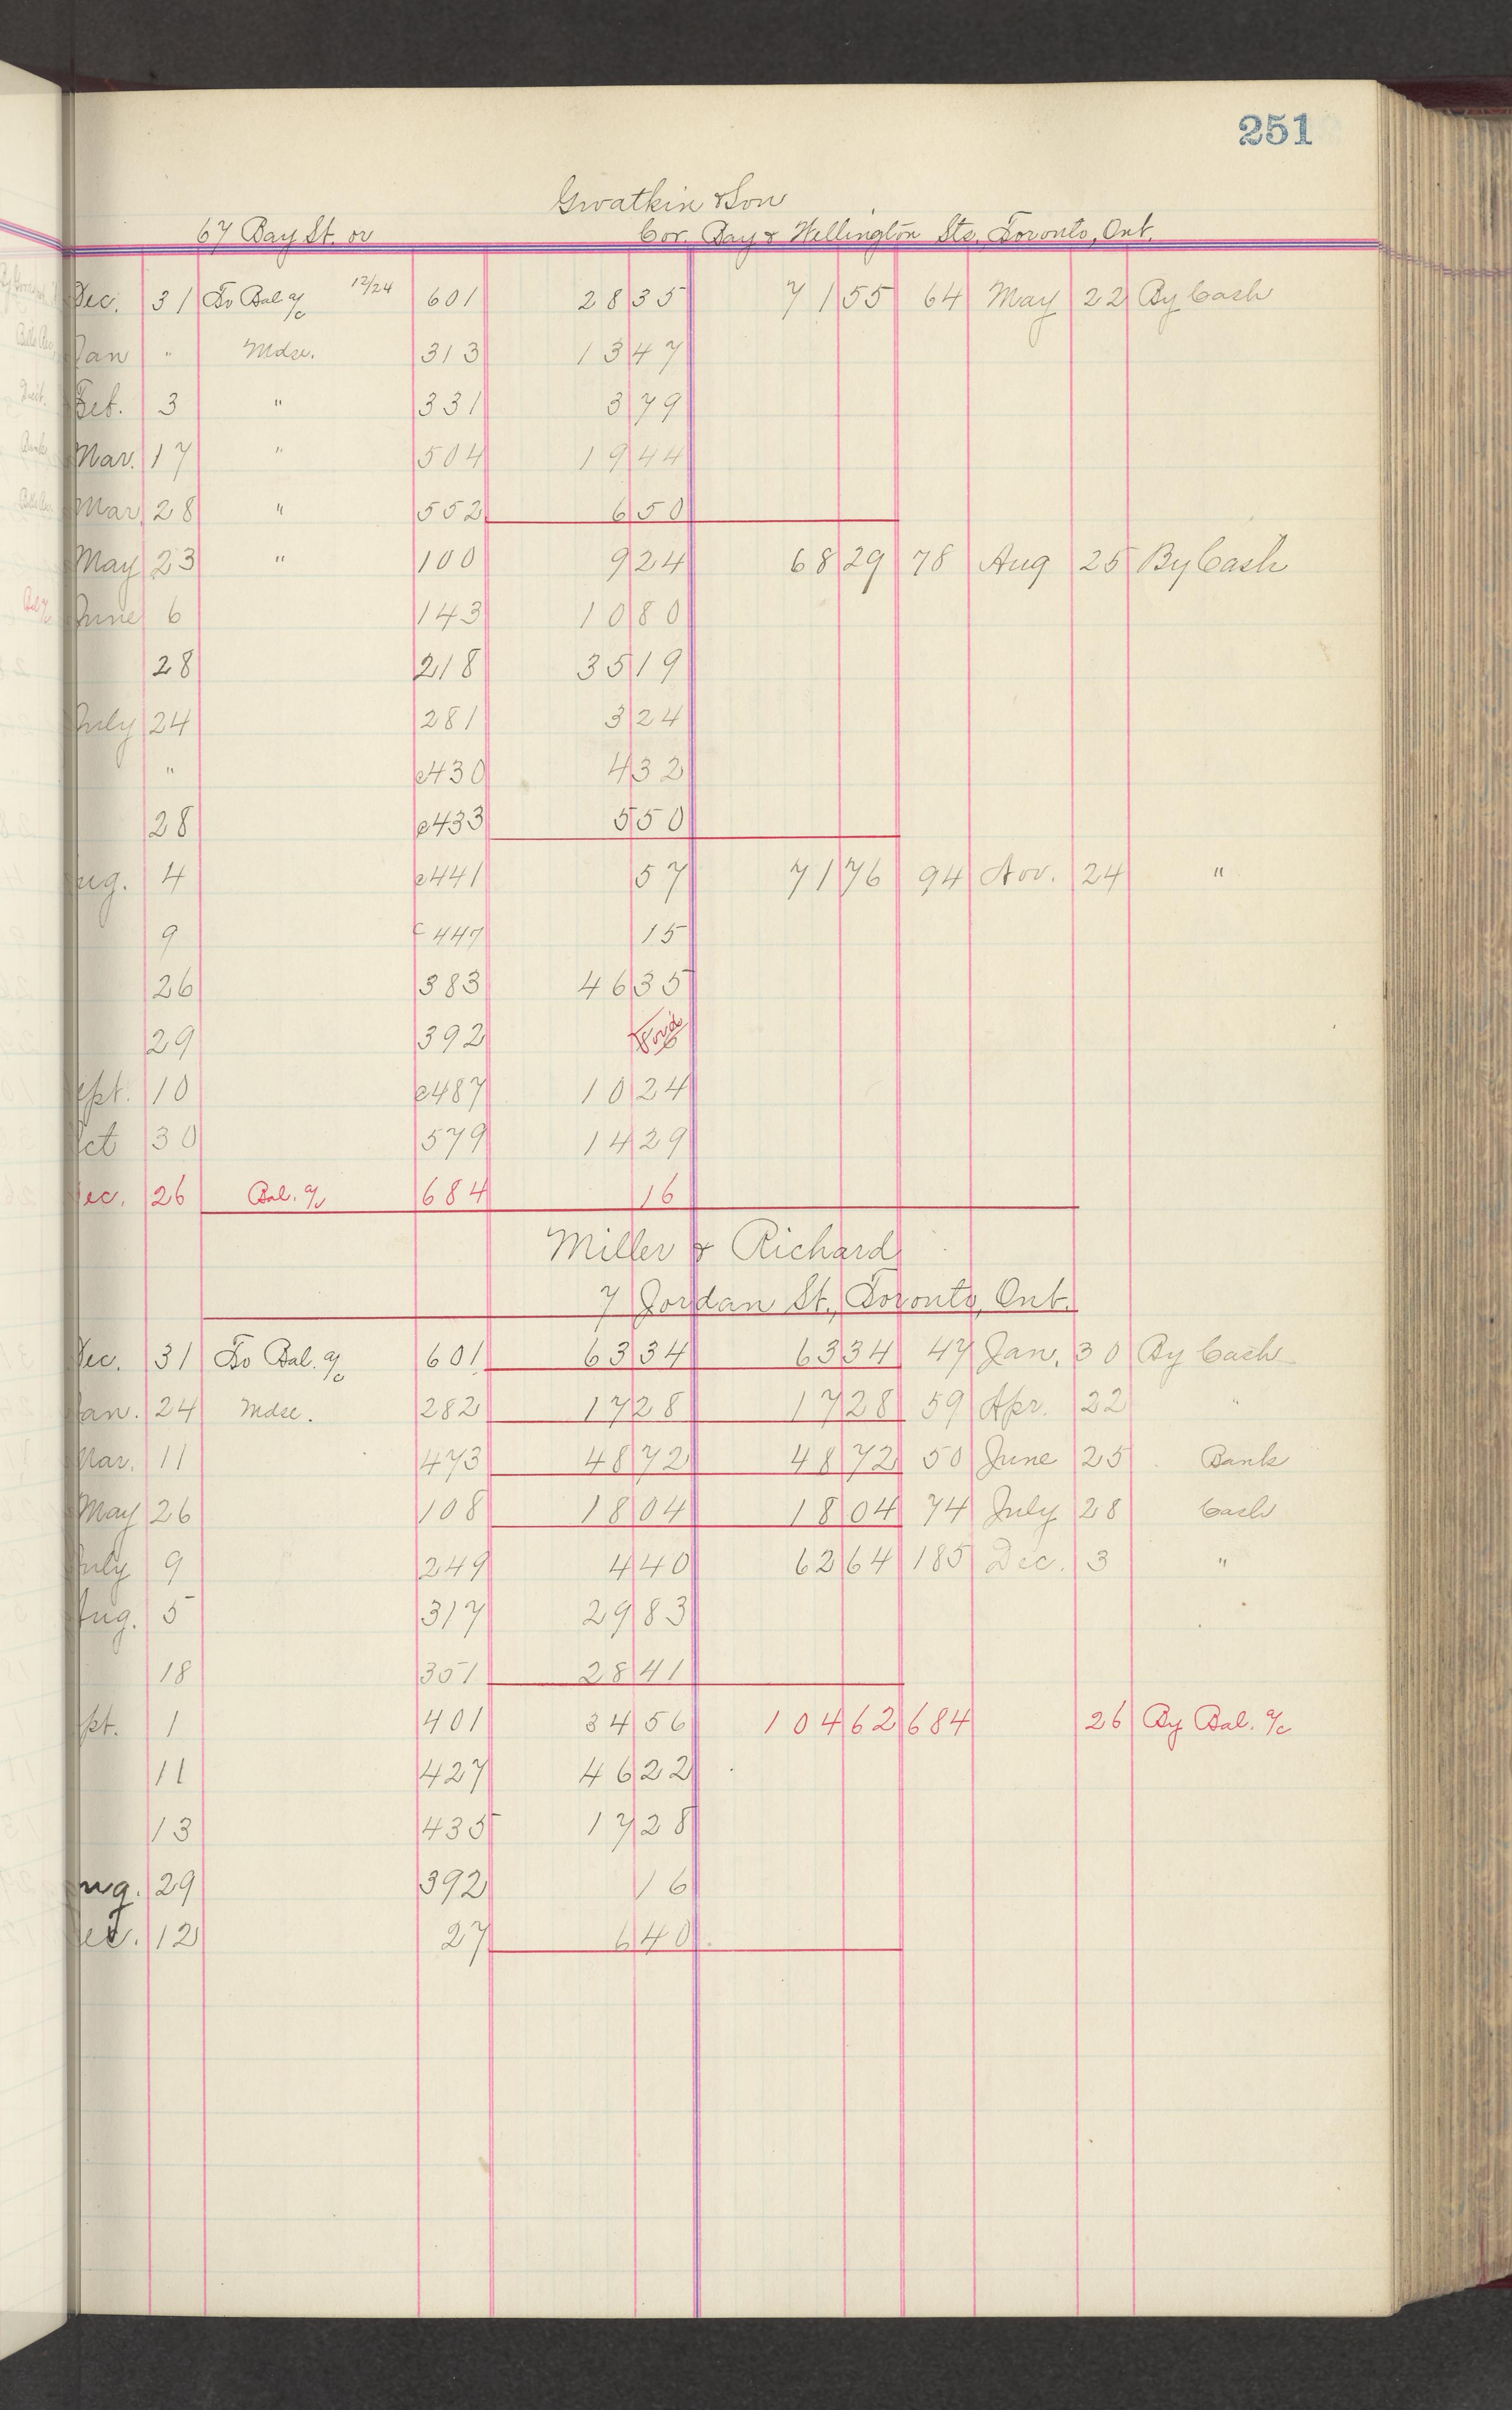 251
Gwatkin & Son
67 Bay St. or Cor. Bay & Wellington Sts., Toronto, Ont.
Dec. 31 To Bal a/c 12/24 601 28 35 71 55 64 May 22 By Cash
Jan " Mdse. 313 13 47
Feb. 3 " 331 3 79
Mar. 17 " 504 19 44
Mar 28 " 552 6 50
May 23 " 100 9 24 68 29 78 Aug 25 By Cash
June 6 143 10 80
28 218 35 19
July 24 281 3 24
" c430 4 32
28 c433 5 50
ug. 4 c441 57 71 76 94 Nov. 24 "
9 c447 15
26 383 46 35
29 392 Void
ept. 10 c487 10 24
ct 30 579 14 29
ec. 26 Bal. a/c 684 16
Miller & Richard
7 Jordan St., Toronto, Ont.
Dec. 31 To Bal. a/c 601 63 34 63 34 47 Jan. 30 By Cash
an. 24 Mdse. 282 17 28 17 28 59 Apr. 22 "
Mar. 11 473 48 72 48 72 50 June 25 Bank
May 26 108 18 04 18 04 74 July 28 Cash
July 9 249 4 40 62 64 185 Dec. 3 "
Aug. 5 317 29 83
18 351 28 41
pt. 1 401 34 56 104 62 684 26 By Bal. a/c
11 427 46 22
13 435 17 28
ug. 29 392 16
ec. 12 27 6 40